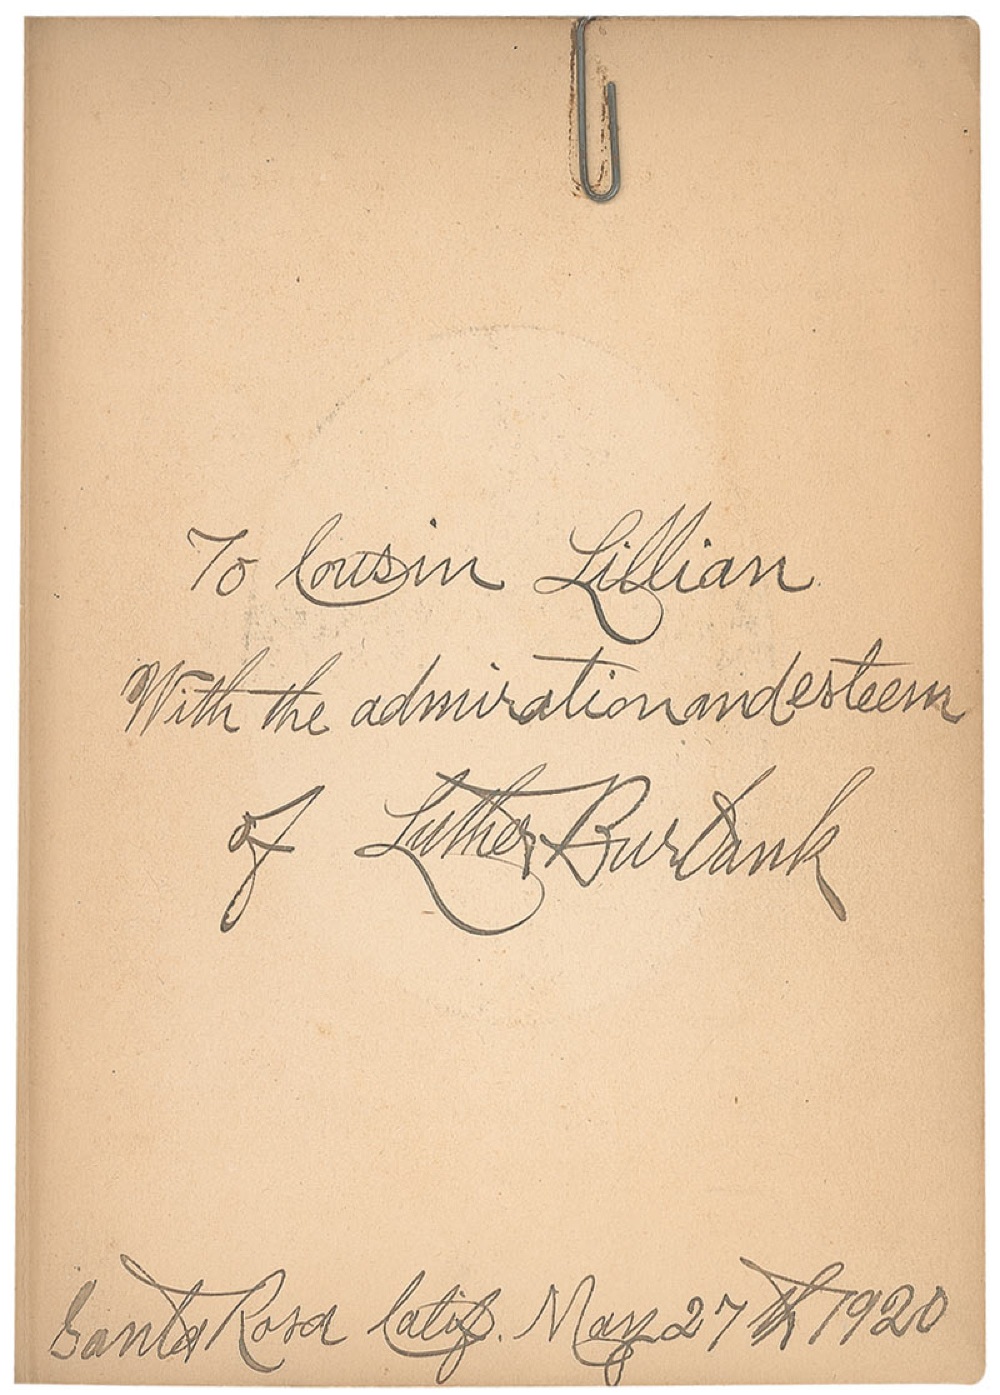 To Cousin Lillian
With the admiration and esteem
of Luther Burbank
Santa Rosa Calif. May 27th 1920